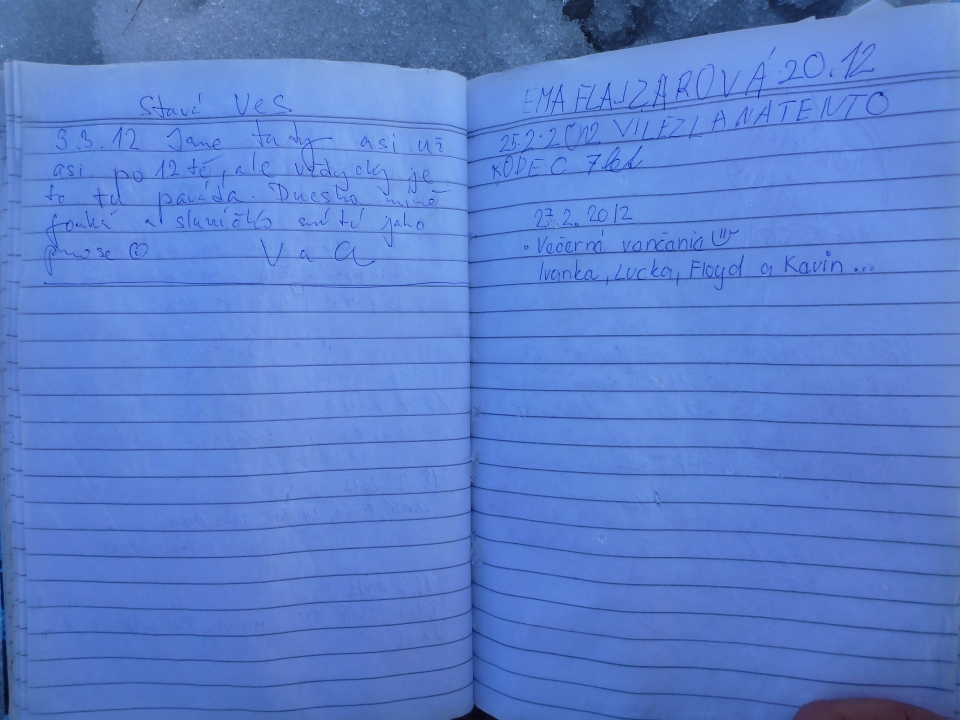 Stará Ves
3.3.12 Jsme tady asi už
asi po 12 té, ale vždycky je
to tu paráda. Dneska mírně
fouká a sluníčko svítí jako
V a A
EMA FLAJZAROVÁ 20.12
25.2.2012 VILEZLA NA TENTO
KOPEC 7 let
27.2.2012
• Večerné venčenie
Ivanka, Lucka, Floyd a Kevin ...